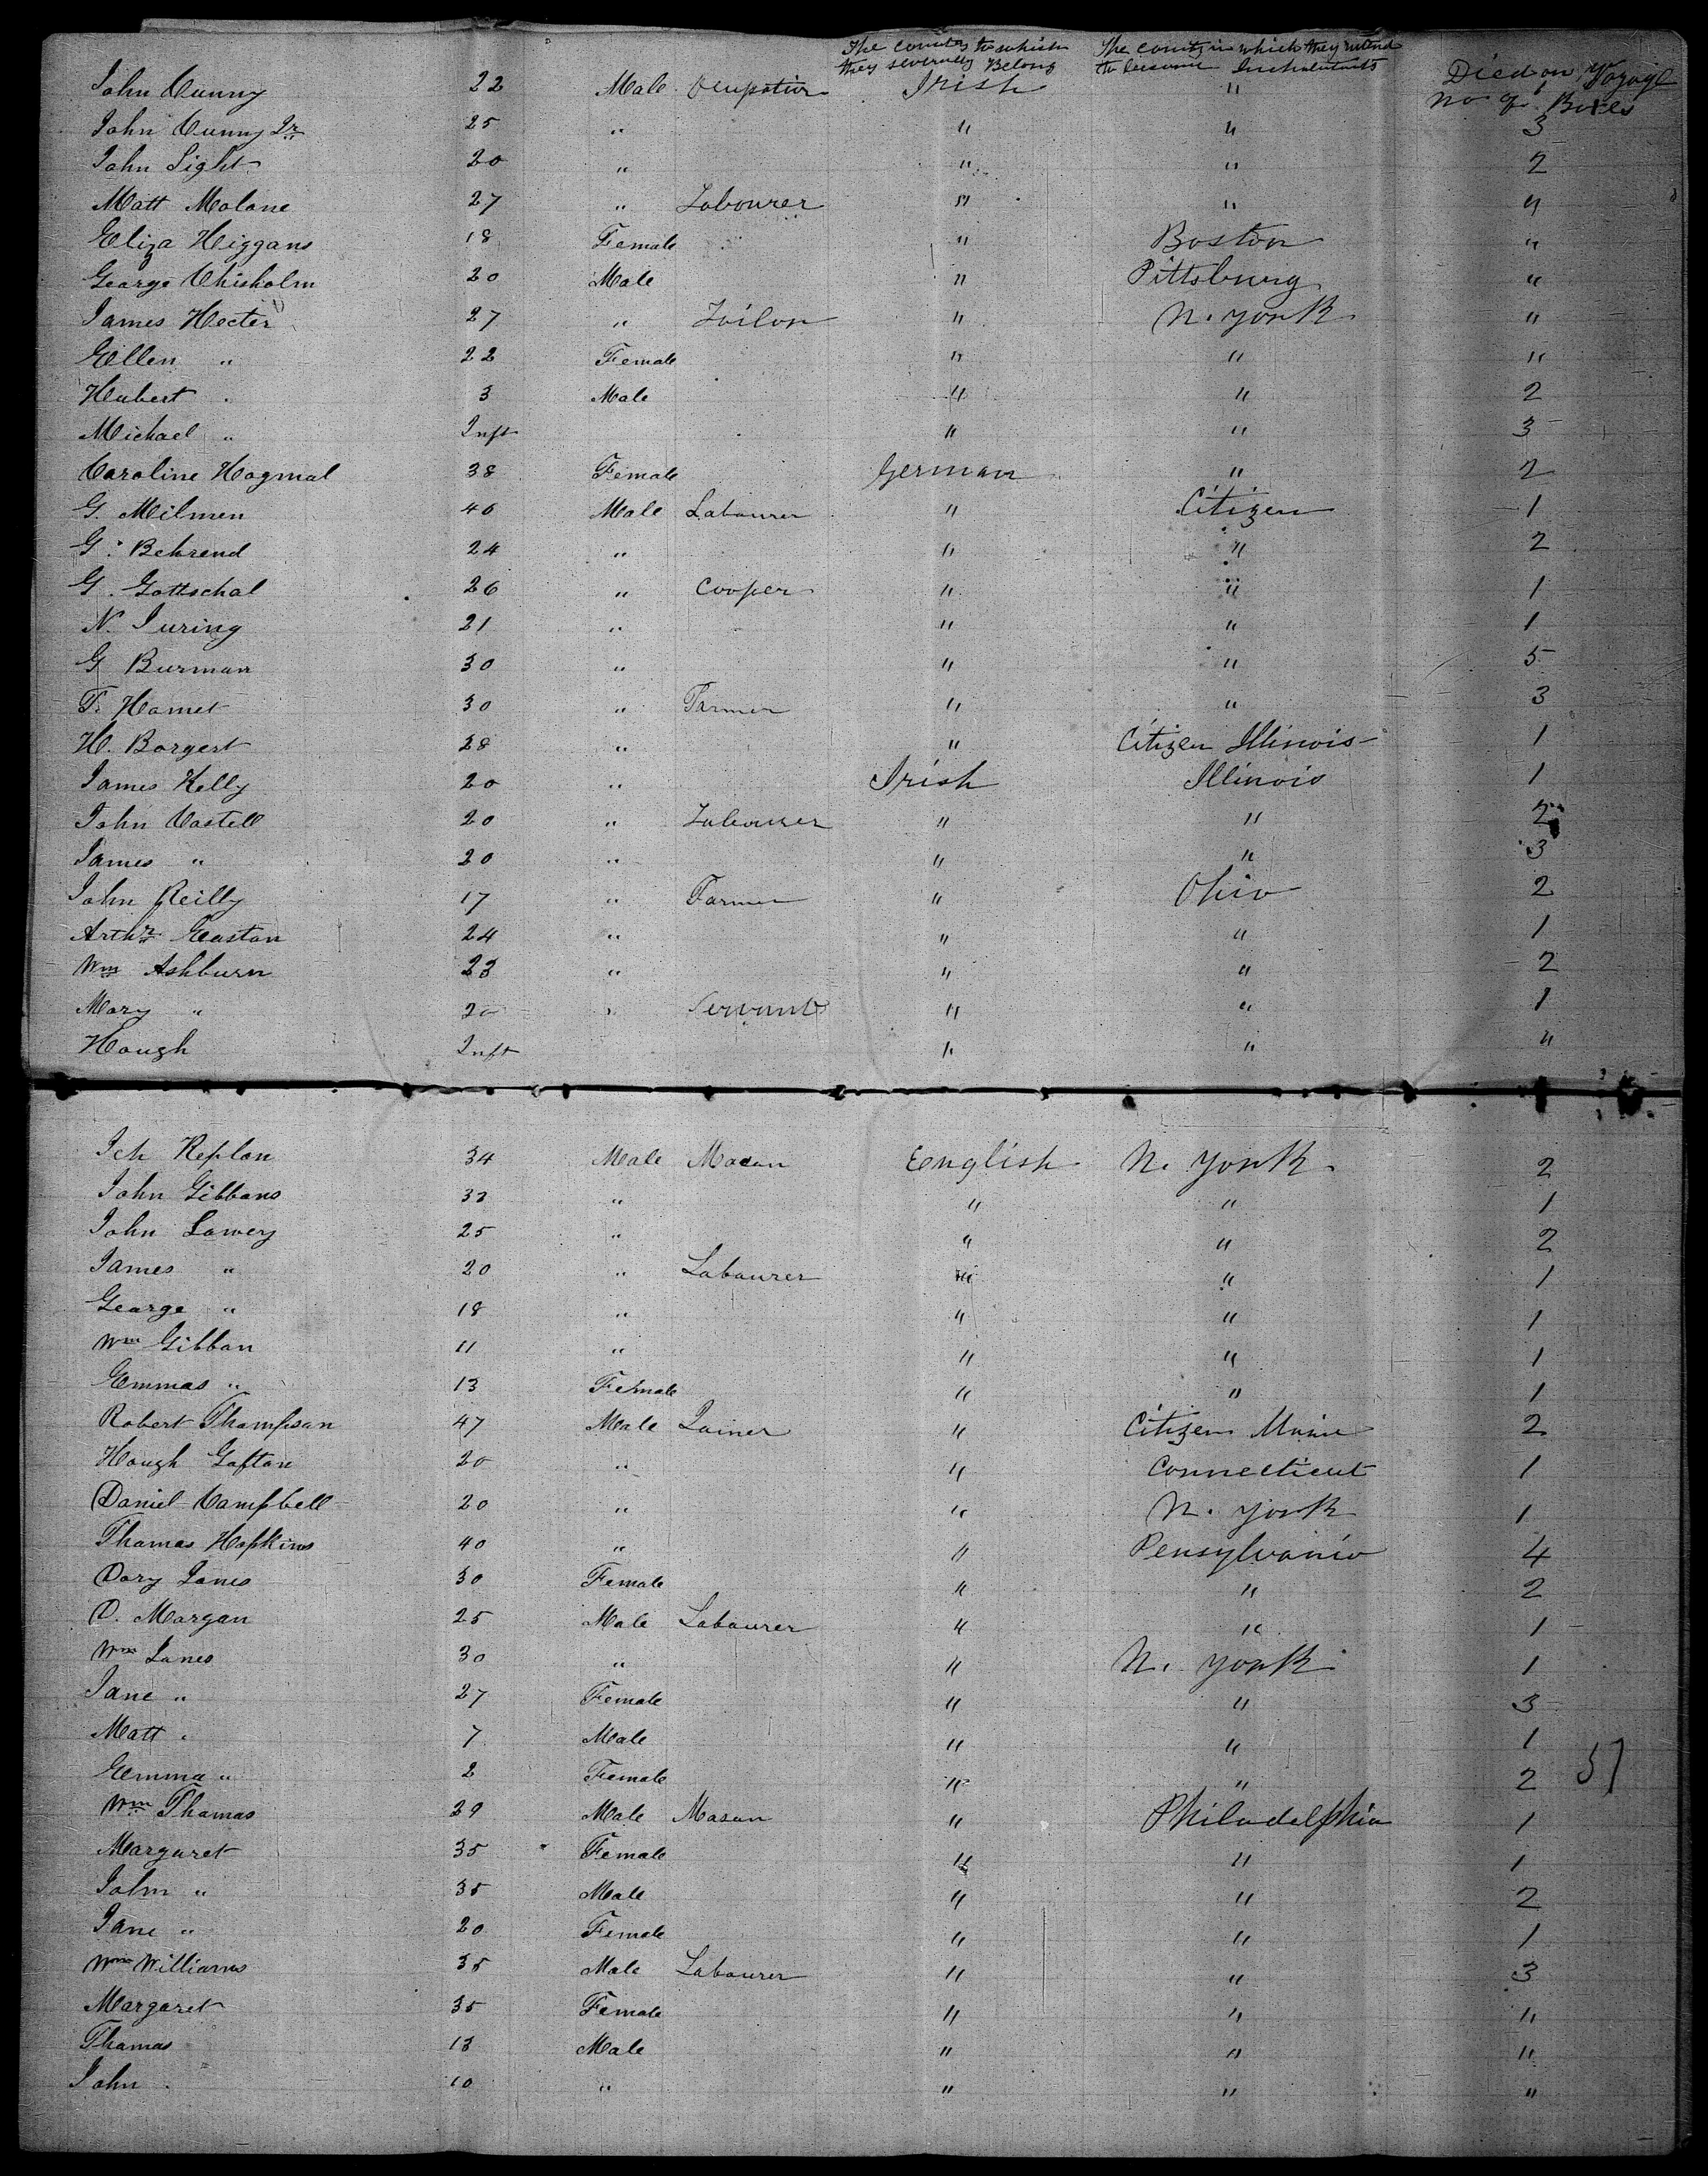 The country to which they severally Belong The country in which they intend to become Inhabitants Died on Voyage No of Boxes
John Cunny 22 Male Ocupation Irish " 1
John Cunny Jr 25 " " " 3
John Light 20 " " " 2
Matt Malone 27 " Labourer " " "
Eliza Higgans 18 Female " Boston "
George Chisholm 20 Male " Pittsburg "
James Hecter 27 " Tailor " N. York "
Ellen " 22 Female " " "
Hubert " 3 Male " " 2
Michael " Inft " " 3
Caroline Hagmal 38 Female German " 2
G. Milmen 40 Male Labourer " Citizen 1
G. Behrend 24 " " " 2
G. Gottschal 26 " Cooper " " 1
N. Juring 21 " " " 1
G Burman 30 " " " 5
F. Hamet 30 " Farmer " " 3
H. Borgert 28 " " Citizen Illinois 1
James Kelly 20 " Irish Illinois 1
John Castell 20 " Labourer " " 2
James " 20 " " " 3
John Reilly 17 " Farmer " Ohio 2
Arthr Easton 24 " " " 1
Wm Ashburn 23 " " " 2
Mary " 20 " Servant " " 1
Hough Inft " " "
Keplan 34 Male Mason English N. York 2
John Gibbons 33 " " " 1
John Lowery 25 " " " 2
James " 20 " Labourer " " 1
George " 18 " " " 1
Wm Gibbon 11 " " " 1
Emmas " 13 Female " " 1
Robert Thompson 47 Male Joiner " Citizen Maine 2
Hough Gafton 20 " " Connecticut 1
Daniel Campbell 20 " " N. York 1
Thomas Hopkins 40 " " Pensylvania 4
Dory Jones 30 Female " " 2
D. Morgan 25 Male Labourer " " 1
Wm Jones 30 " " N. York 1
Jane " 27 Female " " 3
Matt " 7 Male " " 1
Emma " 2 Female " " 2 57
Wm Thomas 29 Male Mason " Philadelphia 1
Margaret 35 Female " " 1
John " 35 Male " " 2
Jane " 20 Female " " 1
Wm Williams 35 Male Labourer " " 3
Margaret 35 Female " " "
Thomas 13 Male " " "
John 10 " " " "